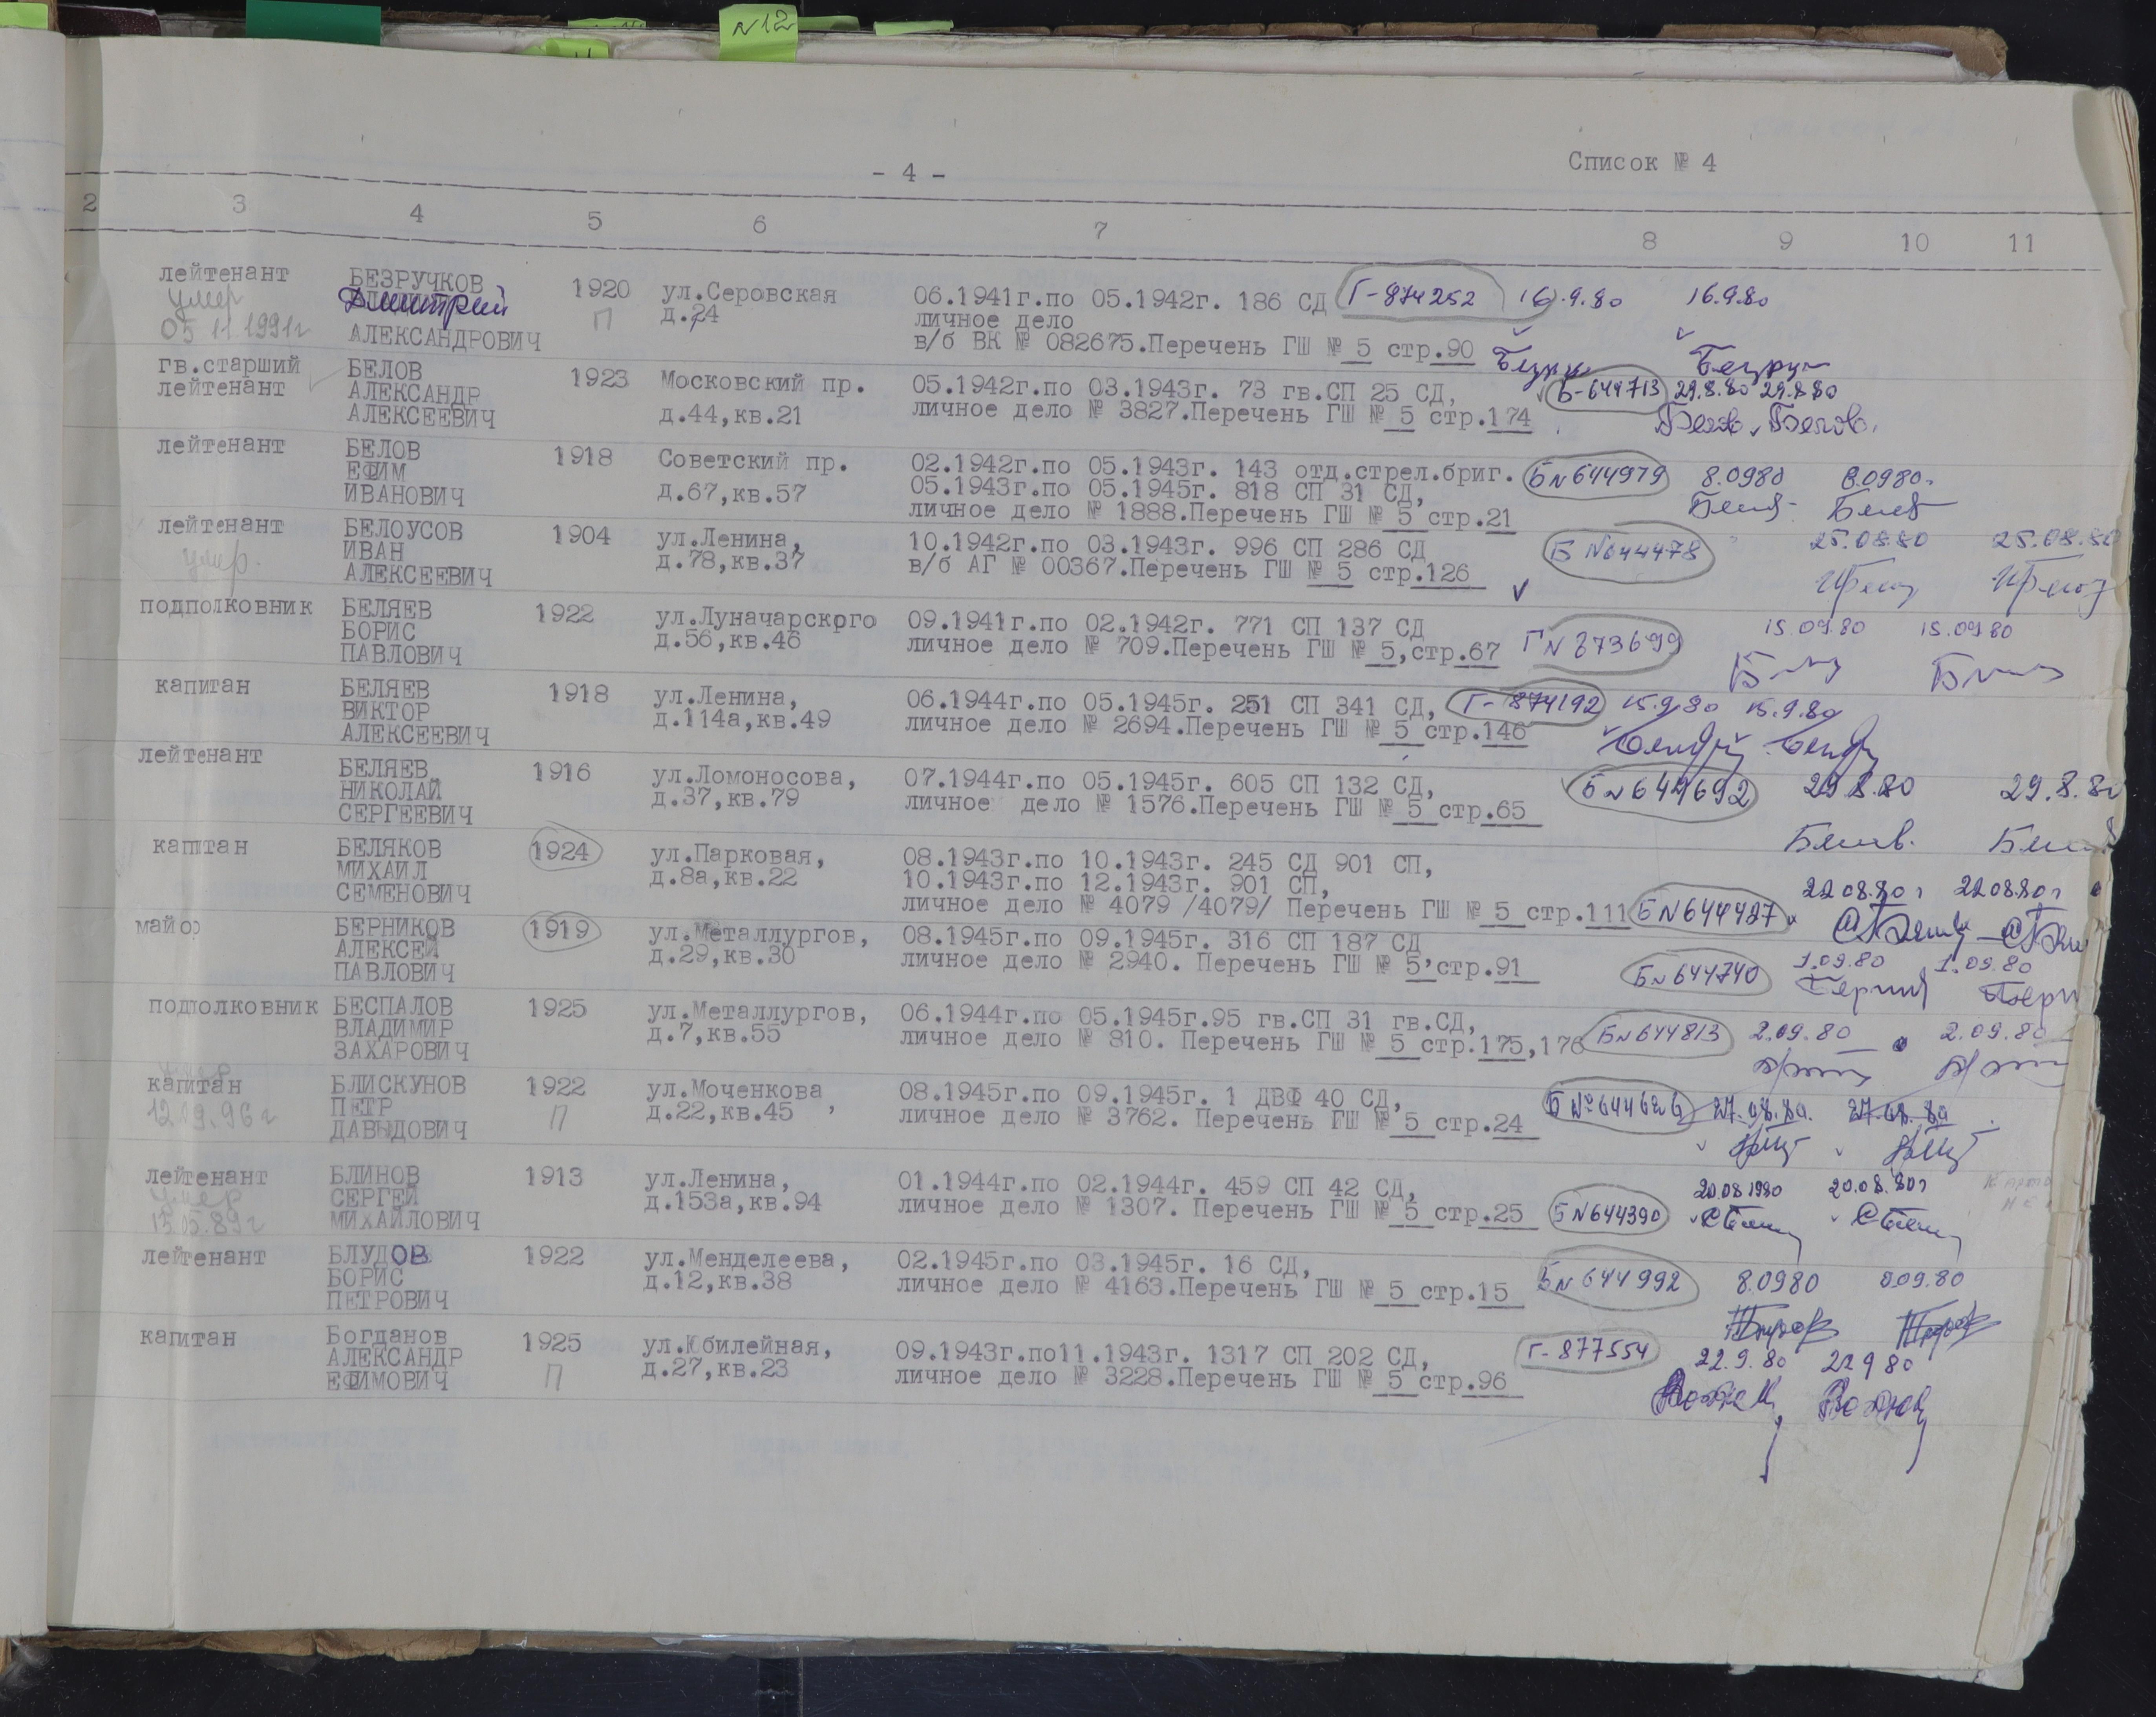 N12
- 4 -
Список № 4
2 3 4 5 6 7 8 9 10 11
лейтенант БЕЗРУЧКОВ 1920 ул.Серовская 06.1941г.по 05.1942г. 186 СД Г-874252 16.9.80 16.9.80
умер Дмитрий П д.24 личное дело
05 11 1991г АЛЕКСАНДРОВИЧ в/б ВК № 082675.Перечень ГШ № 5 стр.90
гв.старший БЕЛОВ 1923 Московский пр. 05.1942г.по 03.1943г. 73 гв.СП 25 СД, Б-644713 29.8.80 29.8.80
лейтенант АЛЕКСАНДР
АЛЕКСЕЕВИЧ д.44,кв.21 личное дело № 3827.Перечень ГШ № 5 стр.174 Белов Белов
лейтенант БЕЛОВ 1918 Советский пр. 02.1942г.по 05.1943г. 143 отд.стрел.бриг. Б№644979 8.0980 8.0980.
ЕФИМ 05.1943г.по 05.1945г. 818 СП 31 СД,
ИВАНОВИЧ д.67,кв.57 личное дело № 1888.Перечень ГШ № 5 стр.21
лейтенант БЕЛОУСОВ 1904 ул.Ленина, 10.1942г.по 03.1943г. 996 СП 286 СД Б №644478 25.08.80 25.08.80
умер. ИВАН д.78,кв.37 в/б АГ № 00367.Перечень ГШ № 5 стр.126
АЛЕКСЕЕВИЧ
подполковник БЕЛЯЕВ 1922 ул.Луначарского 09.1941г.по 02.1942г. 771 СП 137 СД Г№873699 15.09.80 15.09.80
БОРИС д.56,кв.46 личное дело № 709.Перечень ГШ № 5,стр.67
ПАВЛОВИЧ
капитан БЕЛЯЕВ 1918 ул.Ленина, 06.1944г.по 05.1945г. 251 СП 341 СД, Г-874192 15.9.80 15.9.80
ВИКТОР д.114а,кв.49 личное дело № 2694.Перечень ГШ № 5 стр.146
АЛЕКСЕЕВИЧ
лейтенант БЕЛЯЕВ 1916 ул.Ломоносова, 07.1944г.по 05.1945г. 605 СП 132 СД, Б№644692 29.8.80 29.8.80
НИКОЛАЙ д.37,кв.79 личное дело № 1576.Перечень ГШ № 5 стр.65
СЕРГЕЕВИЧ
капитан БЕЛЯКОВ 1924 ул.Парковая, 08.1943г.по 10.1943г. 245 СД 901 СП,
МИХАИЛ д.8а,кв.22 10.1943г.по 12.1943г. 901 СП, 22.08.80г 22.08.80г
СЕМЕНОВИЧ личное дело № 4079 /4079/ Перечень ГШ № 5 стр.111 Б№644487
майор БЕРНИКОВ 1919 ул.Металлургов, 08.1945г.по 09.1945г. 316 СП 187 СД
АЛЕКСЕЙ д.29,кв.30 личное дело № 2940. Перечень ГШ № 5,стр.91 Б№644740 1.09.80 1.09.80
ПАВЛОВИЧ
подполковник БЕСПАЛОВ 1925 ул.Металлургов, 06.1944г.по 05.1945г.95 гв.СП 31 гв.СД,
ВЛАДИМИР д.7,кв.55 личное дело № 810. Перечень ГШ № 5 стр.175,176 Б№644813 2.09.80 2.09.80
ЗАХАРОВИЧ
умер
капитан БЛИСКУНОВ 1922 ул.Моченкова, 08.1945г.по 09.1945г. 1 ДВФ 40 СД, Б №644626 27.08.80. 27.08.80
12.09.96г ПЕТР П д.22,кв.45 личное дело № 3762. Перечень ГШ № 5 стр.24
ДАВЫДОВИЧ
лейтенант БЛИНОВ 1913 ул.Ленина, 01.1944г.по 02.1944г. 459 СП 42 СД, 20.08.1980 20.08.80г
умер СЕРГЕЙ д.153а,кв.94 личное дело № 1307. Перечень ГШ № 5 стр.25 Б№644390
15.05.89г МИХАЙЛОВИЧ
лейтенант БЛУДОВ 1922 ул.Менделеева, 02.1945г.по 03.1945г. 16 СД, Б№644992 8.0980 8.09.80
БОРИС д.12,кв.38 личное дело № 4163.Перечень ГШ № 5 стр.15
ПЕТРОВИЧ
капитан Богданов 1925 ул.Юбилейная, 09.1943г.по11.1943г. 1317 СП 202 СД, Г-877554 22.9.80 22.9.80
АЛЕКСАНДР П д.27,кв.23 личное дело № 3228.Перечень ГШ № 5 стр.96
ЕФИМОВИЧ